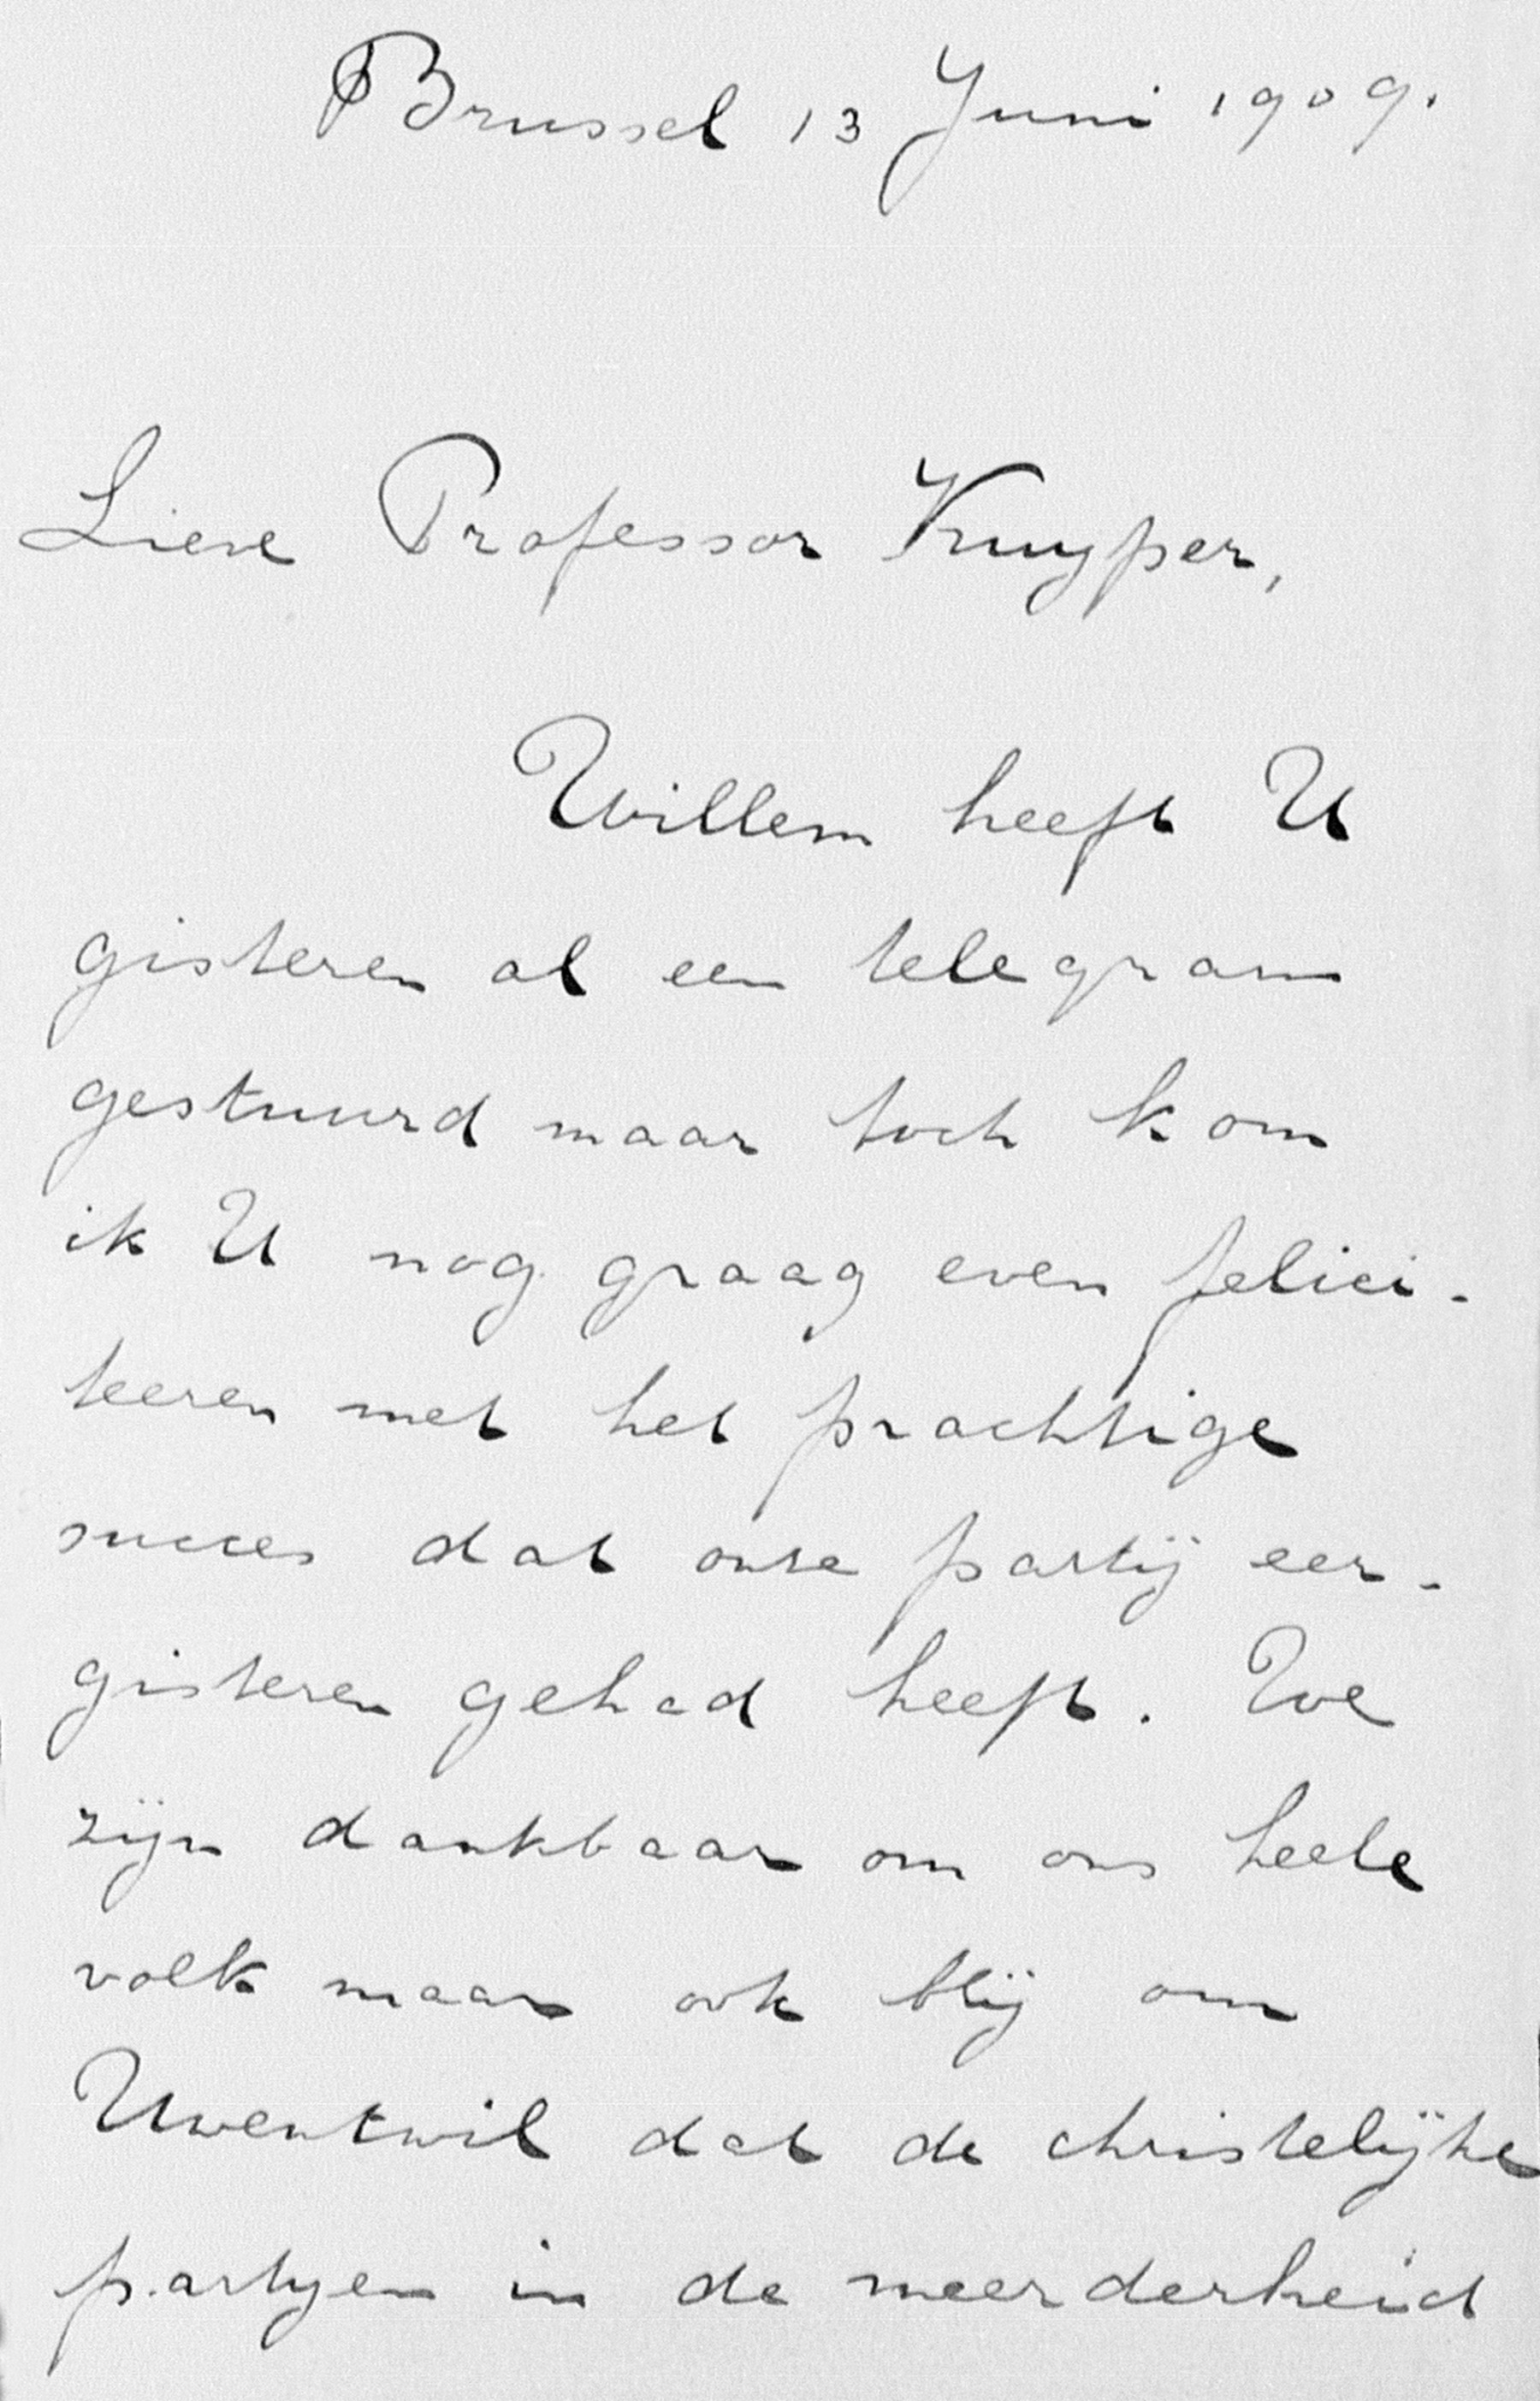 Brussel 13 Juni 1909.
Lieve Professor Kuyper,
Willem heeft U
gisteren al een telegram
gestuurd maar toch kom
ik U nog graag even felici-
teeren met het prachtige
succes dat onze partij eer-
gisteren gehad heeft. We
zijn dankbaar om ons heele
volk maar ook blij om
Uwentwil dat de christelijke
partyen in de meerderheid